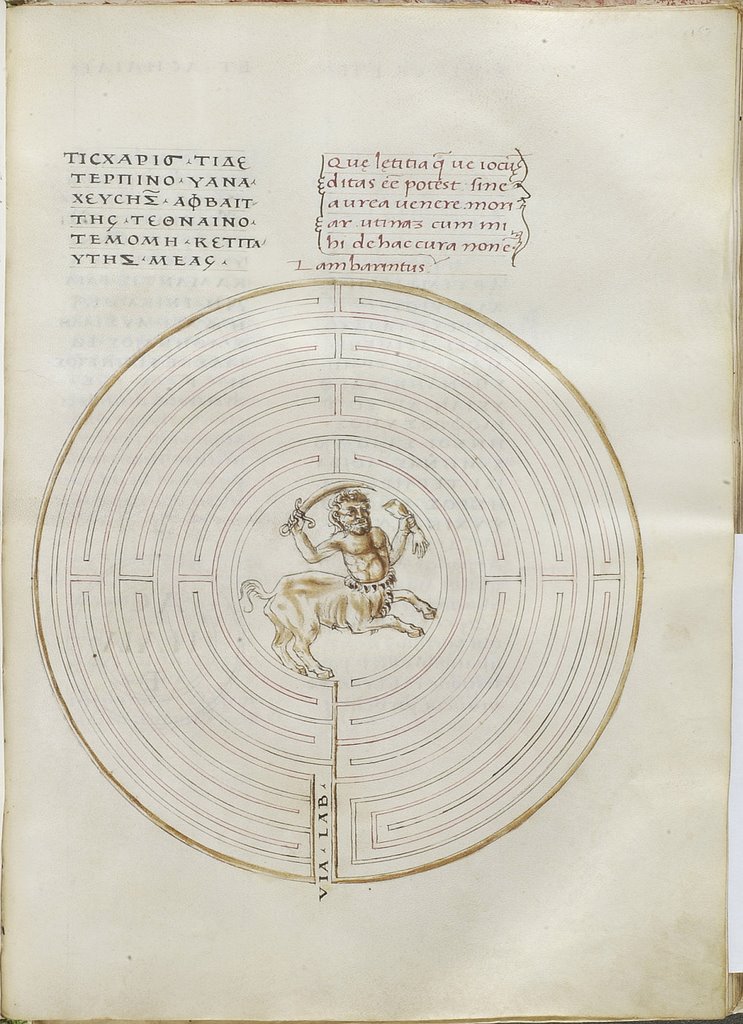 ΤΙϹΧΑΡΙϹ · ΤΙΔΕ
ΤΕΡΠΙΝΟ · ΥΑΝΑ
ΧΕΥϹΗΣ̅ · ΑΦΒΑΙΤ
ΤΗϹ · ΤΕΘΝΑΙΝΟ
ΤΕΜΟΜΗ · ΚΕΤΙΤΑ
ΥΤΗΣ · ΜΕΑϹ ·
Quę lętitia q̄ ue iocū
ditas eē potest sine
aurea uenere mori
ar utinaʒ cum mi
hi de hac cura non ē
Lambarintus
VIA · LAB ·